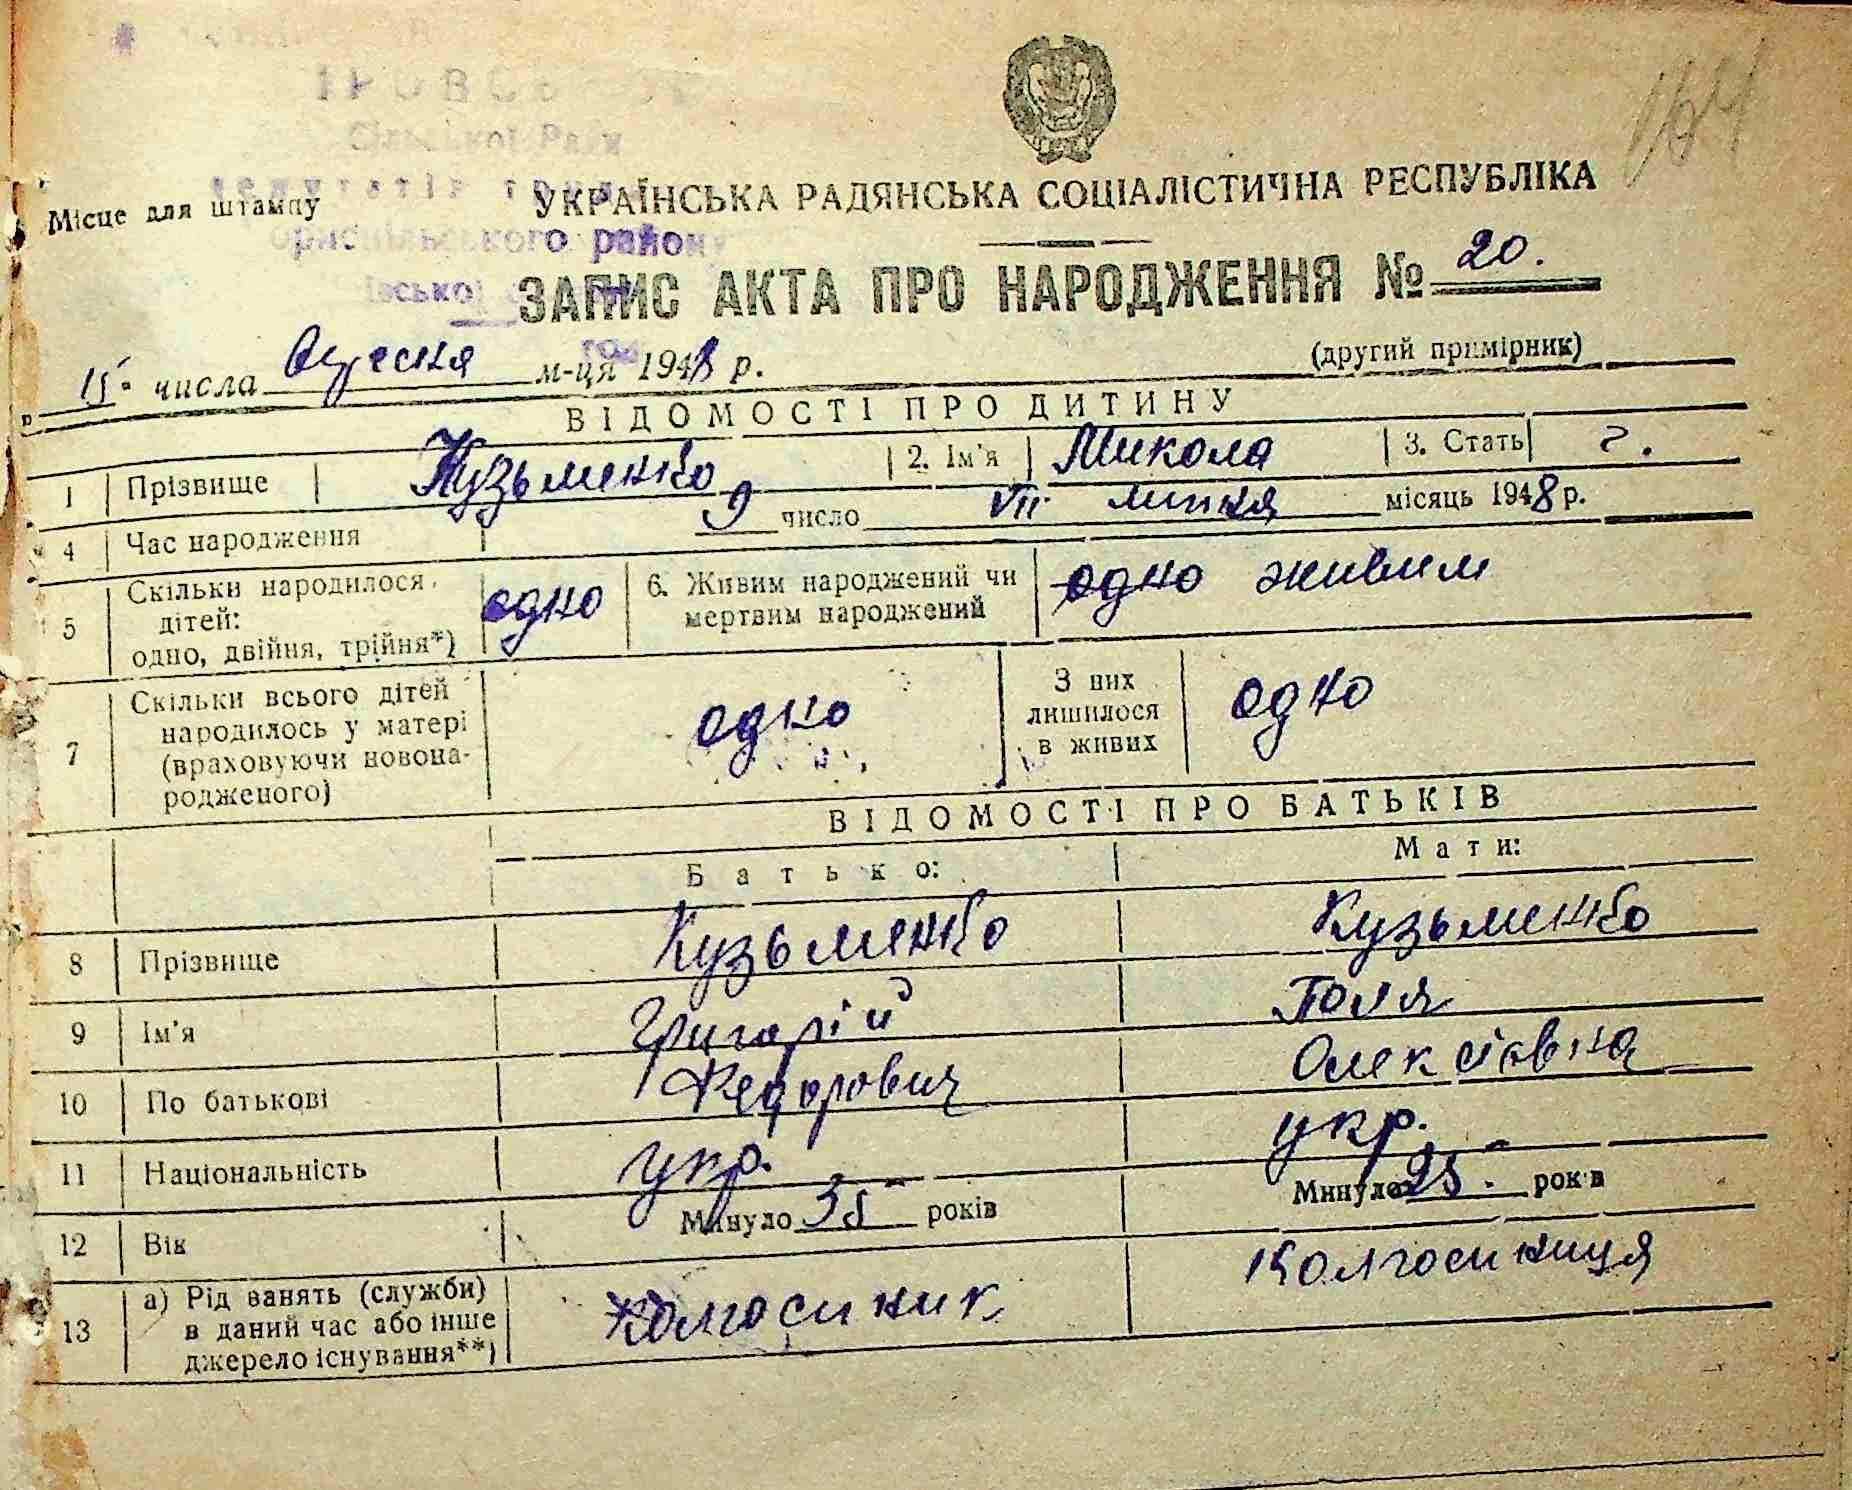 164
Сільської Ради
депутатів труд
Місце для штампу
УКРАЇНСЬКА РАДЯНСЬКА СОЦІАЛІСТИЧНА РЕСПУБЛІКА
ориспільського району
ЗАПИС АКТА ПРО НАРОДЖЕННЯ № 20.
івської
15 числа Вересня м-ця 1948 р.
(другий примірник)
ВІДОМОСТІ ПРО ДИТИНУ
1 Прізвище Кузьменко 2. Ім'я Микола 3. Стать г.
4 Час народження 9 число VII липня місяць 1948 р.
5 Скільки народилося дітей: одно, двійня, трійня*) одно 6. Живим народжений чи мертвим народжений одно живим
7 Скільки всього дітей народилось у матері (враховуючи новонародженого) одно З них лишилося в живих одно
ВІДОМОСТІ ПРО БАТЬКІВ
Батько: Мати:
8 Прізвище Кузьменко Кузьменко
9 Ім'я Григорій Поля
10 По батькові Федорович Олексіівна
11 Національність укр. укр.
12 Вік Минуло 35 років Минуло 25. років
13 а) Рід занять (служби) в даний час або інше джерело існування**) Колгоспник Колгоспниця